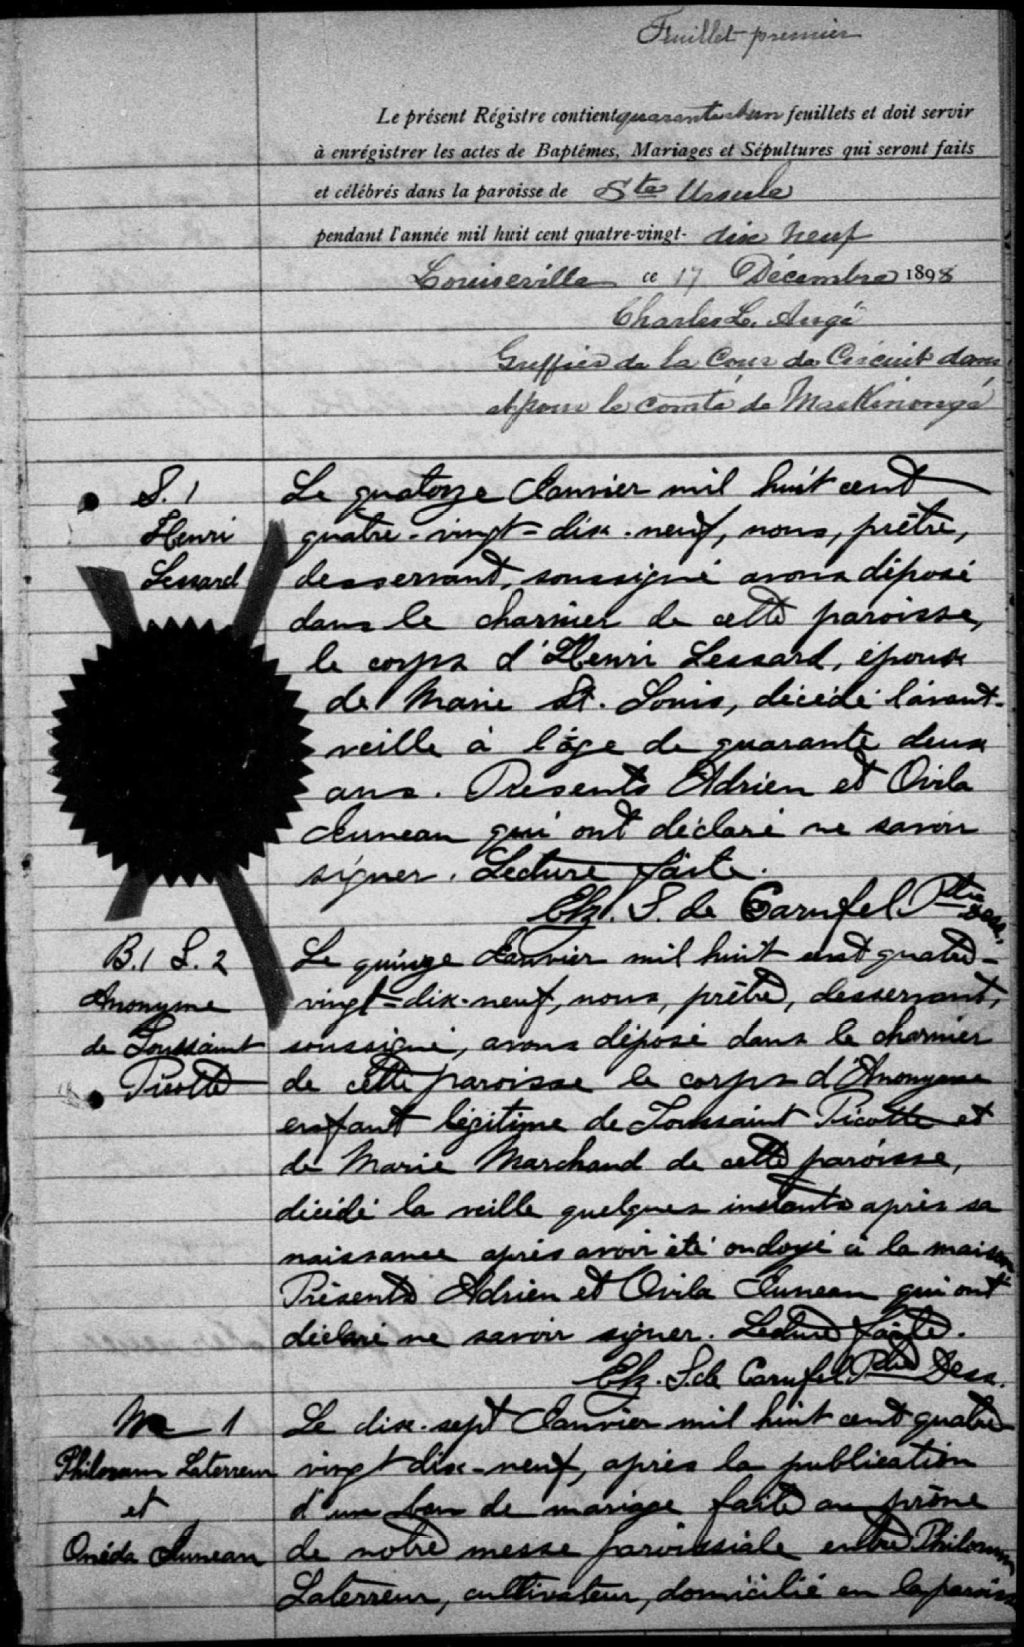 Feuillet premier
Le présent Régistre contient quarante et un feuillets et doit servir
à enrégistrer les actes de Baptêmes, Mariages et Sépultures qui seront faits
et célébrés dans la paroisse de Ste Ursule
pendant l'année mil huit cent quatre-vingt- dix neuf
Louiseville ce 17 Décembre 1898
Charles L. Augé
Greffier de la Cour de Circuit dans
et pour le comté de Maskinongé
S. 1
Henri
Lessard
Le quatorze Janvier mil huit cent
quatre-vingt=dix-neuf, nous, prêtre,
desservant, soussigné avons déposé
dans le charnier de cette paroisse,
le corps d'Henri Lessard, époux
de Marie St. Louis, décédé l'avant-
veille à l'âge de quarante deux
ans. Présents Adrien et Ovila
Juneau qui ont déclaré ne savoir
signer. Lecture faite.
Ch. S. de Carufel Ptre Dess.
B.1 S.2
Anonyme
de Toussaint
Picotte
Le quinze Janvier mil huit cent quatre-
vingt=dix-neuf, nous, prêtre, desservant,
soussigné, avons déposé dans le charnier
de cette paroisse le corps d'Anonyme
enfant légitime de Toussaint Picotte et
de Marie Marchand de cette paroisse,
décédé la veille quelques instants après sa
naissance après avoir été ondoyé à la maison
Présents Adrien et Ovila Juneau qui ont
déclaré ne savoir signer. Lecture faite.
Ch. S. de Carufel Ptre Dess.
M 1
Philorum Laterreur
et
Onéda Juneau
Le dix-sept Janvier mil huit cent quatre
vingt dix-neuf, après la publication
d'un ban de mariage faite au prône
de notre messe paroissiale entre Philorum
Laterreur, cultivateur, domicilié en la paroisse